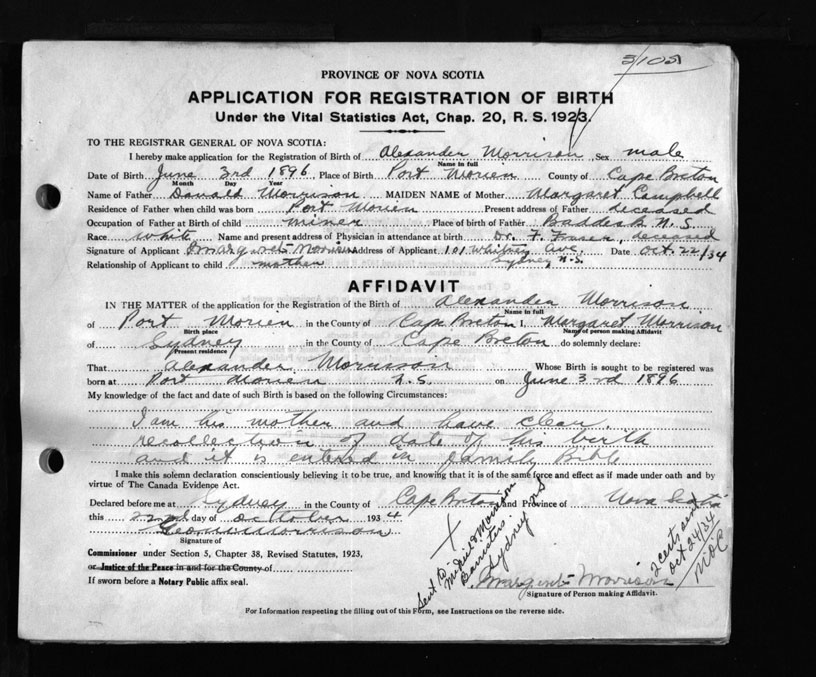 PROVINCE OF NOVA SCOTIA
APPLICATION FOR REGISTRATION OF BIRTH
Under the Vital Statistics Act, Chap. 20, R. S. 1923.
TO THE REGISTRAR GENERAL OF NOVA SCOTIA:
I hereby make application for the Registration of Birth of Alexander Morrison Sex male
Name in full
Date of Birth June 3rd 1896, Place of Birth Port Morien County of Cape Breton
Month Day Year
Name of Father Donald Morrison MAIDEN NAME of Mother Margaret Campbell
Residence of Father when child was born Port Morien Present address of Father deceased
Occupation of Father at Birth of child miner Place of birth of Father Baddeck N.S.
Race White Name and present address of Physician in attendance at birth Dr. F. Fraser, deceased
Signature of Applicant Address of Applicant 101 Whitney Ave. Date Oct. 22/34
Relationship of Applicant to child mother Sydney N.S.
AFFIDAVIT
IN THE MATTER of the application for the Registration of the Birth of Alexander Morrison
Name in full
of Port Morien in the County of Cape Breton I, Margaret Morrison
Birth place Name of person making Affidavit
of Sydney in the County of Cape Breton do solemnly declare:
Present residence
That Alexander Morrison Whose Birth is sought to be registered was
born at Port Morien N.S. on June 3rd 1896
My knowledge of the fact and date of such Birth is based on the following Circumstances:
I am his mother and have clear
recollection of date of his birth
and it is entered in family Bible
I make this solemn declaration conscientiously believing it to be true, and knowing that it is of the same force and effect as if made under oath and by
virtue of The Canada Evidence Act.
Declared before me at Sydney in the County of Cape Breton and Province of Nova Scotia
this 22nd day of October 1934
Morrison
Signature of
Commissioner under Section 5, Chapter 38, Revised Statutes, 1923,
or Justice of the Peace in and for the County of
If sworn before a Notary Public affix seal.
Sent to
McDonald & Morrison
Barristers
Sydney NS
2 certs sent
Oct 24/34
Margaret Morrison
Signature of Person making Affidavit.
For Information respecting the filling out of this Form, see Instructions on the reverse side.